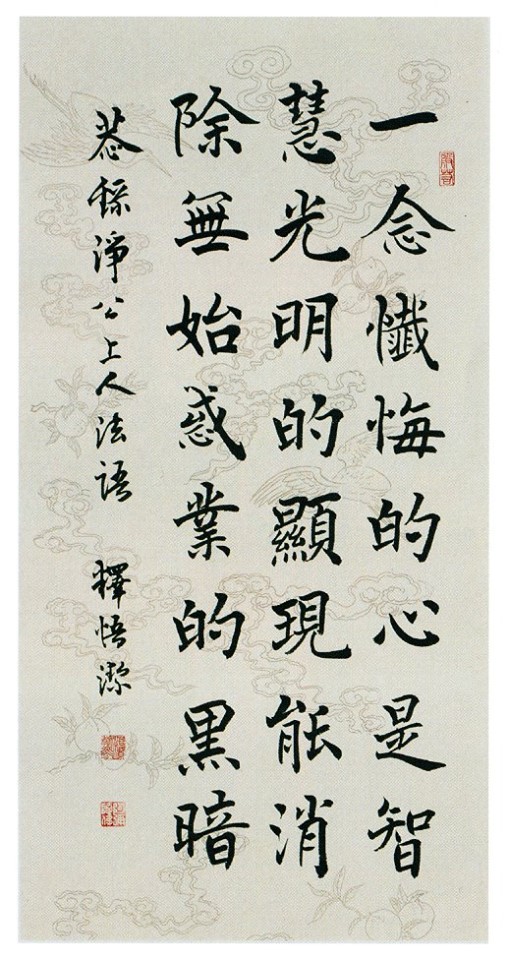 一念懺悔的心是智
慧光明的顯現能消
除無始惑業的黑暗
恭錄淨公上人法語 釋悟潔